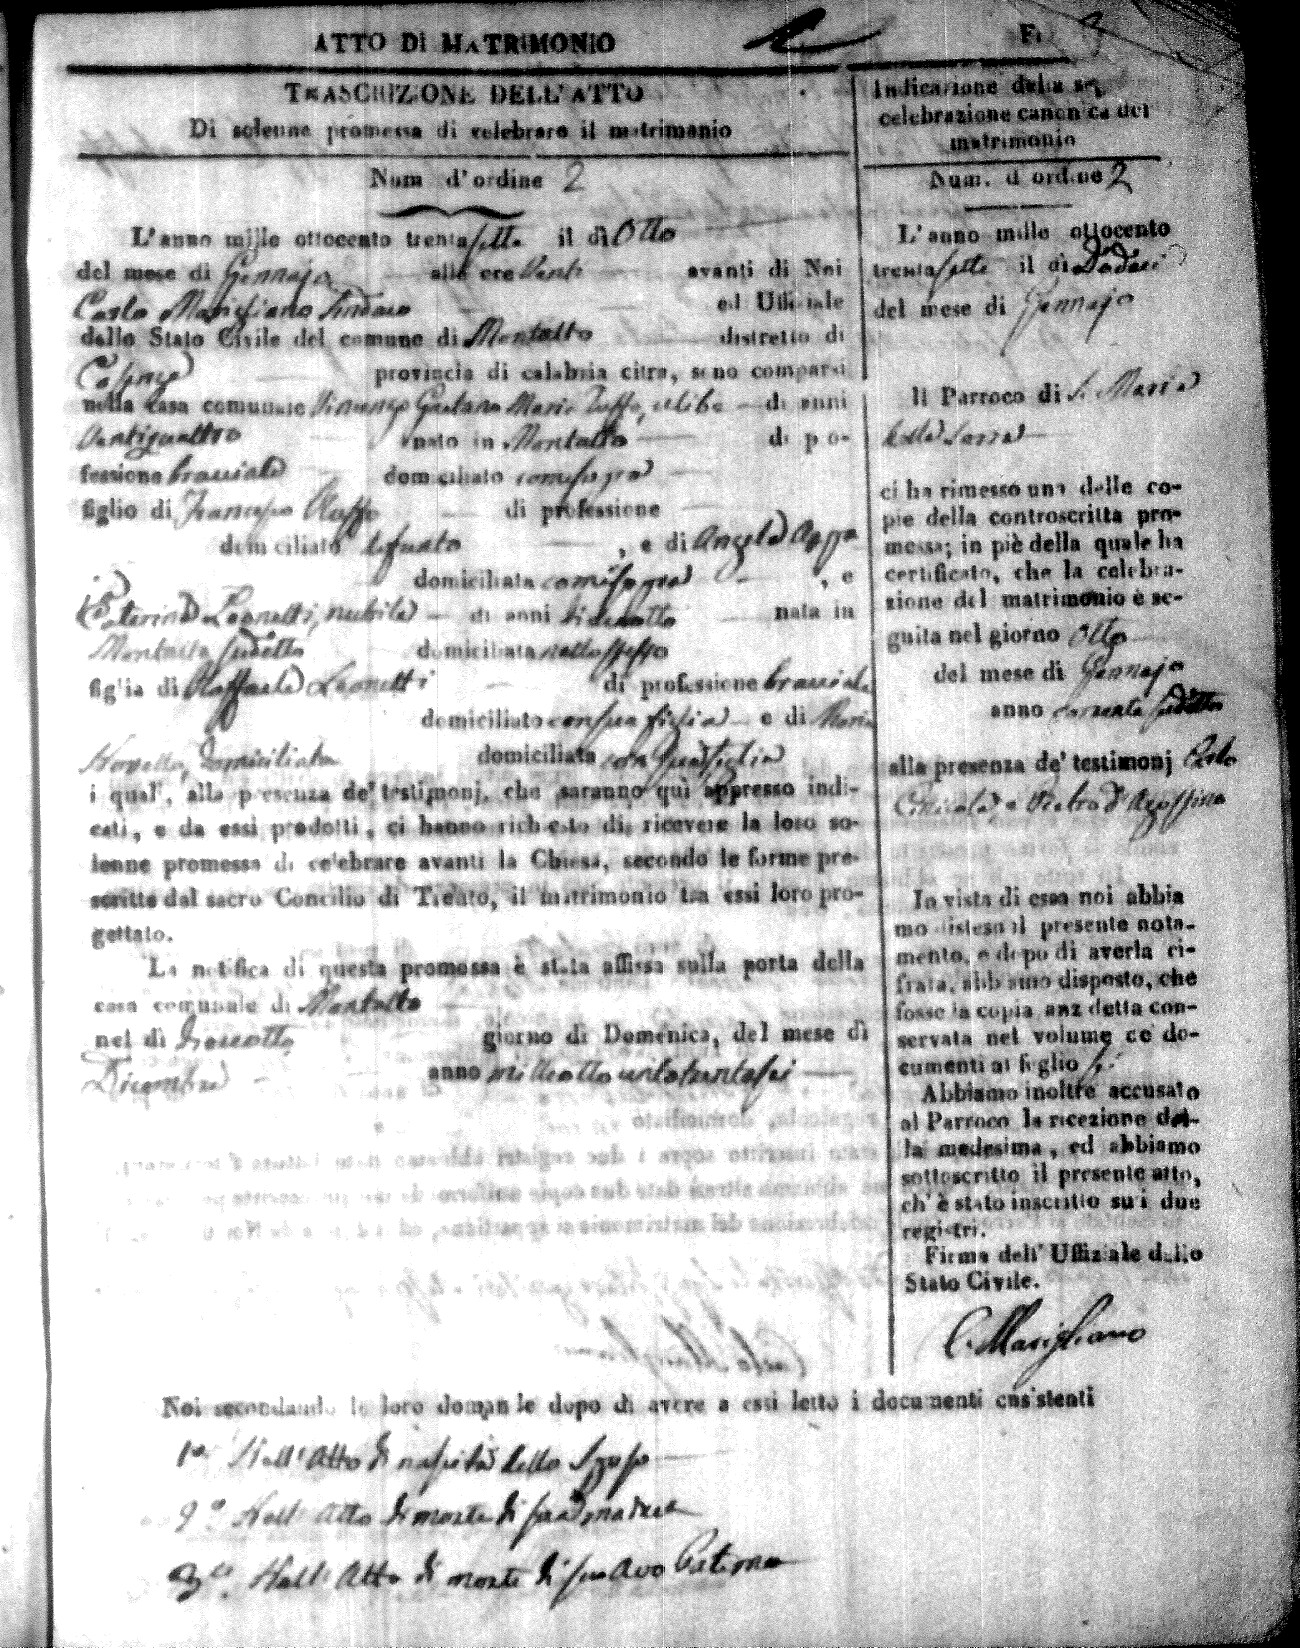 ATTO DI MATRIMONIO
TRASCRIZIONE DELL'ATTO
Di solenne promessa di celebrare il matrimonio
Num d'ordine 2
L'anno mille ottocento trentasette il dì Otto
del mese di Gennajo alle ore Venti avanti di Noi
Carlo Marigliano Sindaco ed Uffiziale
dello Stato Civile del comune di Montalto distretto di
Cosenza provincia di calabria citra, sono comparsi
nella casa comunale Vincenzo Gaetano Maria Ruffo, celibe di anni
Ventiquattro nato in Montalto di pro-
fessione bracciale domiciliato
figlio di Francesco Ruffo di professione
domiciliato defunto, e di Angela
domiciliata, e
Caterina Leonetti, nubile di anni dieciotto nata in
Montalto sudetto domiciliata nello stesso
figlia di Raffaele Leonetti di professione bracciale
domiciliato con sua figlia e di Maria
Novello, domiciliata domiciliata con sua figlia
i quali, alla presenza de' testimonj, che saranno quì appresso indi-
cati, e da essi prodotti, ci hanno richiesto di ricevere la loro so-
lenne promessa di celebrare avanti la Chiesa, secondo le forme pre-
scritte dal sacro Concilio di Trento, il matrimonio tra essi loro pro-
gettato.
La notifica di questa promessa è stata affissa sulla porta della
casa comunale di Montalto
nel dì dieciotto giorno di Domenica, del mese dì
Dicembre anno milleottocentotrentasei
Indicazione della
celebrazione canonica del
matrimonio
Num. d'ordine 2
L'anno mille ottocento
trentasette il dì Dodeci
del mese di Gennajo
Il Parroco di S. Maria
della Serra
ci ha rimesso una delle co-
pie della controscritta pro-
messa; in piè della quale ha
certificato, che la celebra-
zione del matrimonio è se-
guita nel giorno Otto
del mese di Gennajo
anno corrente sudetto
alla presenza de' testimonj Carlo
e Pietro
In vista di essa noi abbia
mo disteso il presente nota-
mento, e dopo di averla ci-
frata, abbiamo disposto, che
fosse la copia anzidetta con-
servata nel volume de' do-
cumenti al foglio
Abbiamo inoltre accusato
al Parroco la ricezione del-
la medesima, ed abbiamo
sottoscritto il presente atto,
ch' è stato inscritto su i due
registri.
Firma dell' Uffiziale dello
Stato Civile.
C. Marigliano
Noi secondando le loro domande dopo di avere a essi letto i documenti consistenti
1º Nell' Atto di nascita dello Sposo
2º Nell' Atto di morte di sua madre
3º Nell' Atto di morte di suo Avo Paterno